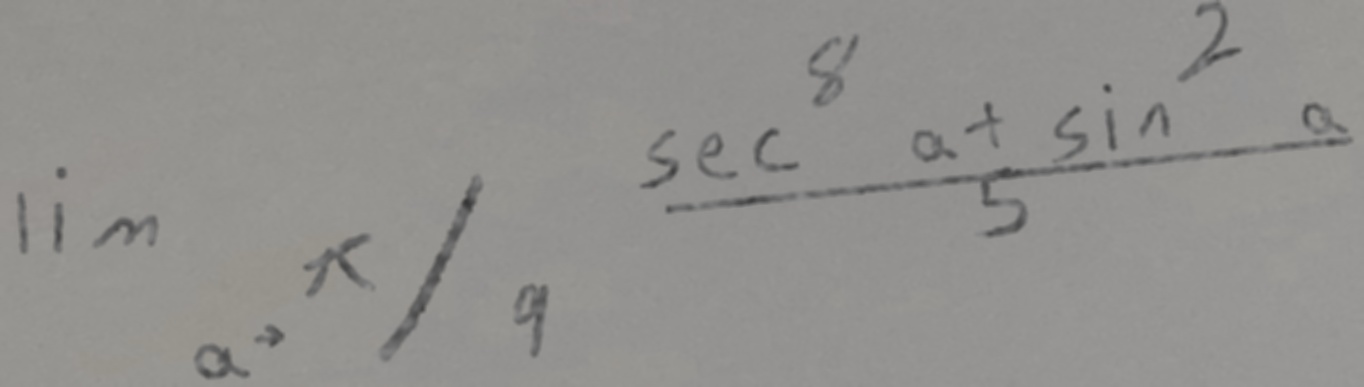 lim a→π/9 (sec⁸ a + sin² a)/5